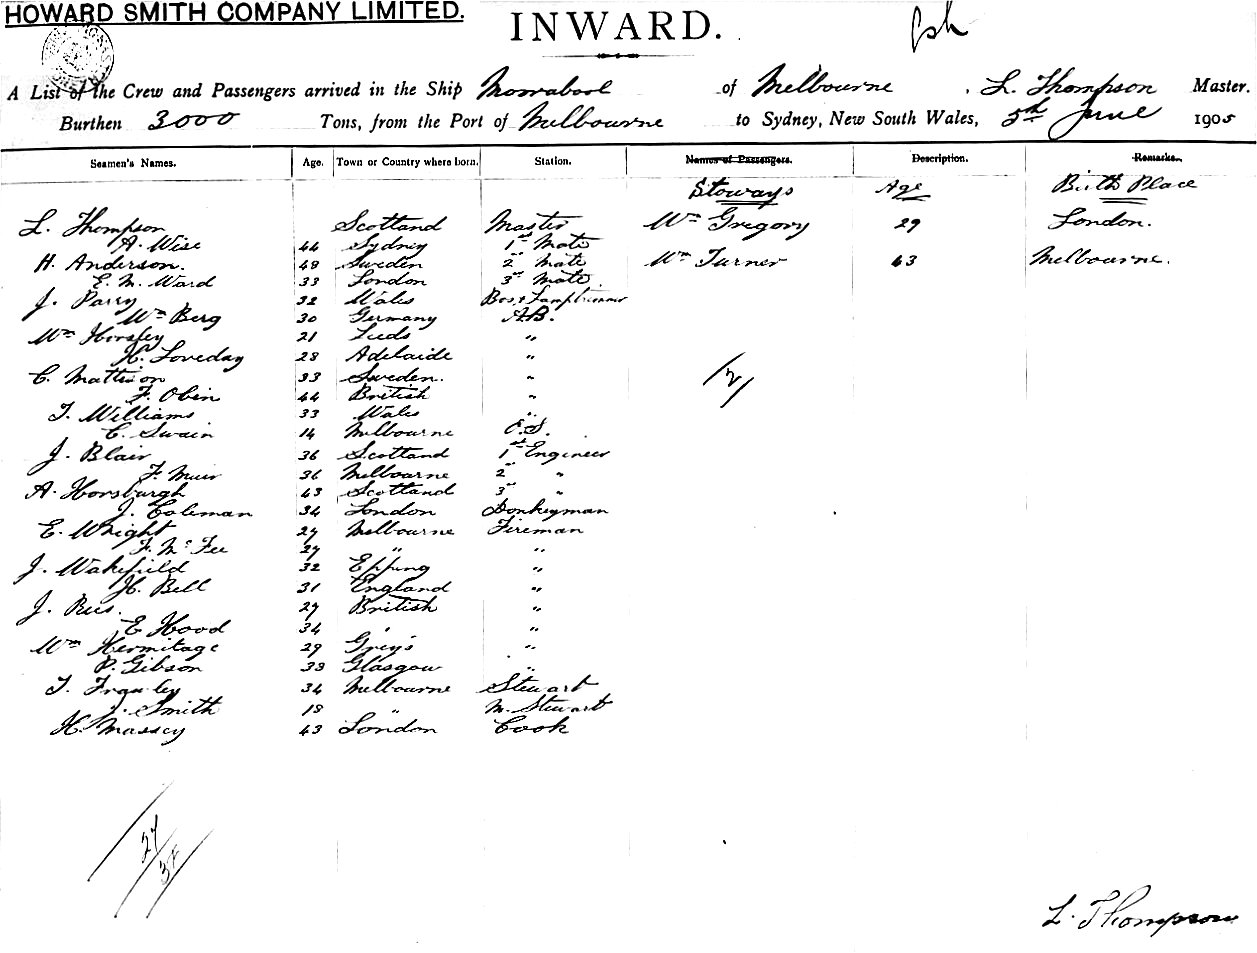 HOWARD SMITH COMPANY LIMITED.
INWARD.
A List of the Crew and Passengers arrived in the Ship Moorabool of Melbourne, L. Thompson Master.
Burthen 3000 Tons, from the Port of Melbourne to Sydney, New South Wales, 5th June 1905
Seamen's Names. Age. Town or Country where born. Station. Names of Passengers. Description. Remarks.
Stoways Age Birth Place
L. Thompson Scotland Master Wm Gregory 29 London.
A. Wise 44 Sydney 1st Mate
H. Anderson. 48 Sweden 2nd Mate Wm Turner 43 Melbourne.
E. M. Ward 33 London 3rd Mate
J. Parry 32 Wales Bos & Lamptrimmer
Wm Berg 30 Germany A.B.
Wm Horsley 21 Leeds "
H. Loveday 28 Adelaide "
C. Mattson 33 Sweden. "
F. Obin 44 British "
T. Williams 33 Wales "
C. Swain 14 Melbourne O.S.
J. Blair 36 Scotland 1st Engineer
F. Muir 36 Melbourne 2nd "
A. Horsburgh 43 Scotland 3rd "
J. Coleman 34 London Donkeyman
E. Wright 27 Melbourne Fireman
F. McFee 27 " "
J. Wakefield 32 Epping "
H. Bell 31 England "
J. Rees. 27 British "
E Hood 34 " "
Wm Hermitage 29 Grays "
P. Gibson 38 Glasgow "
T. Frawley 34 Melbourne Stewart
J. Smith 18 " M. Stewart
H. Massey 43 London Cook
/2/
27
L. Thompson